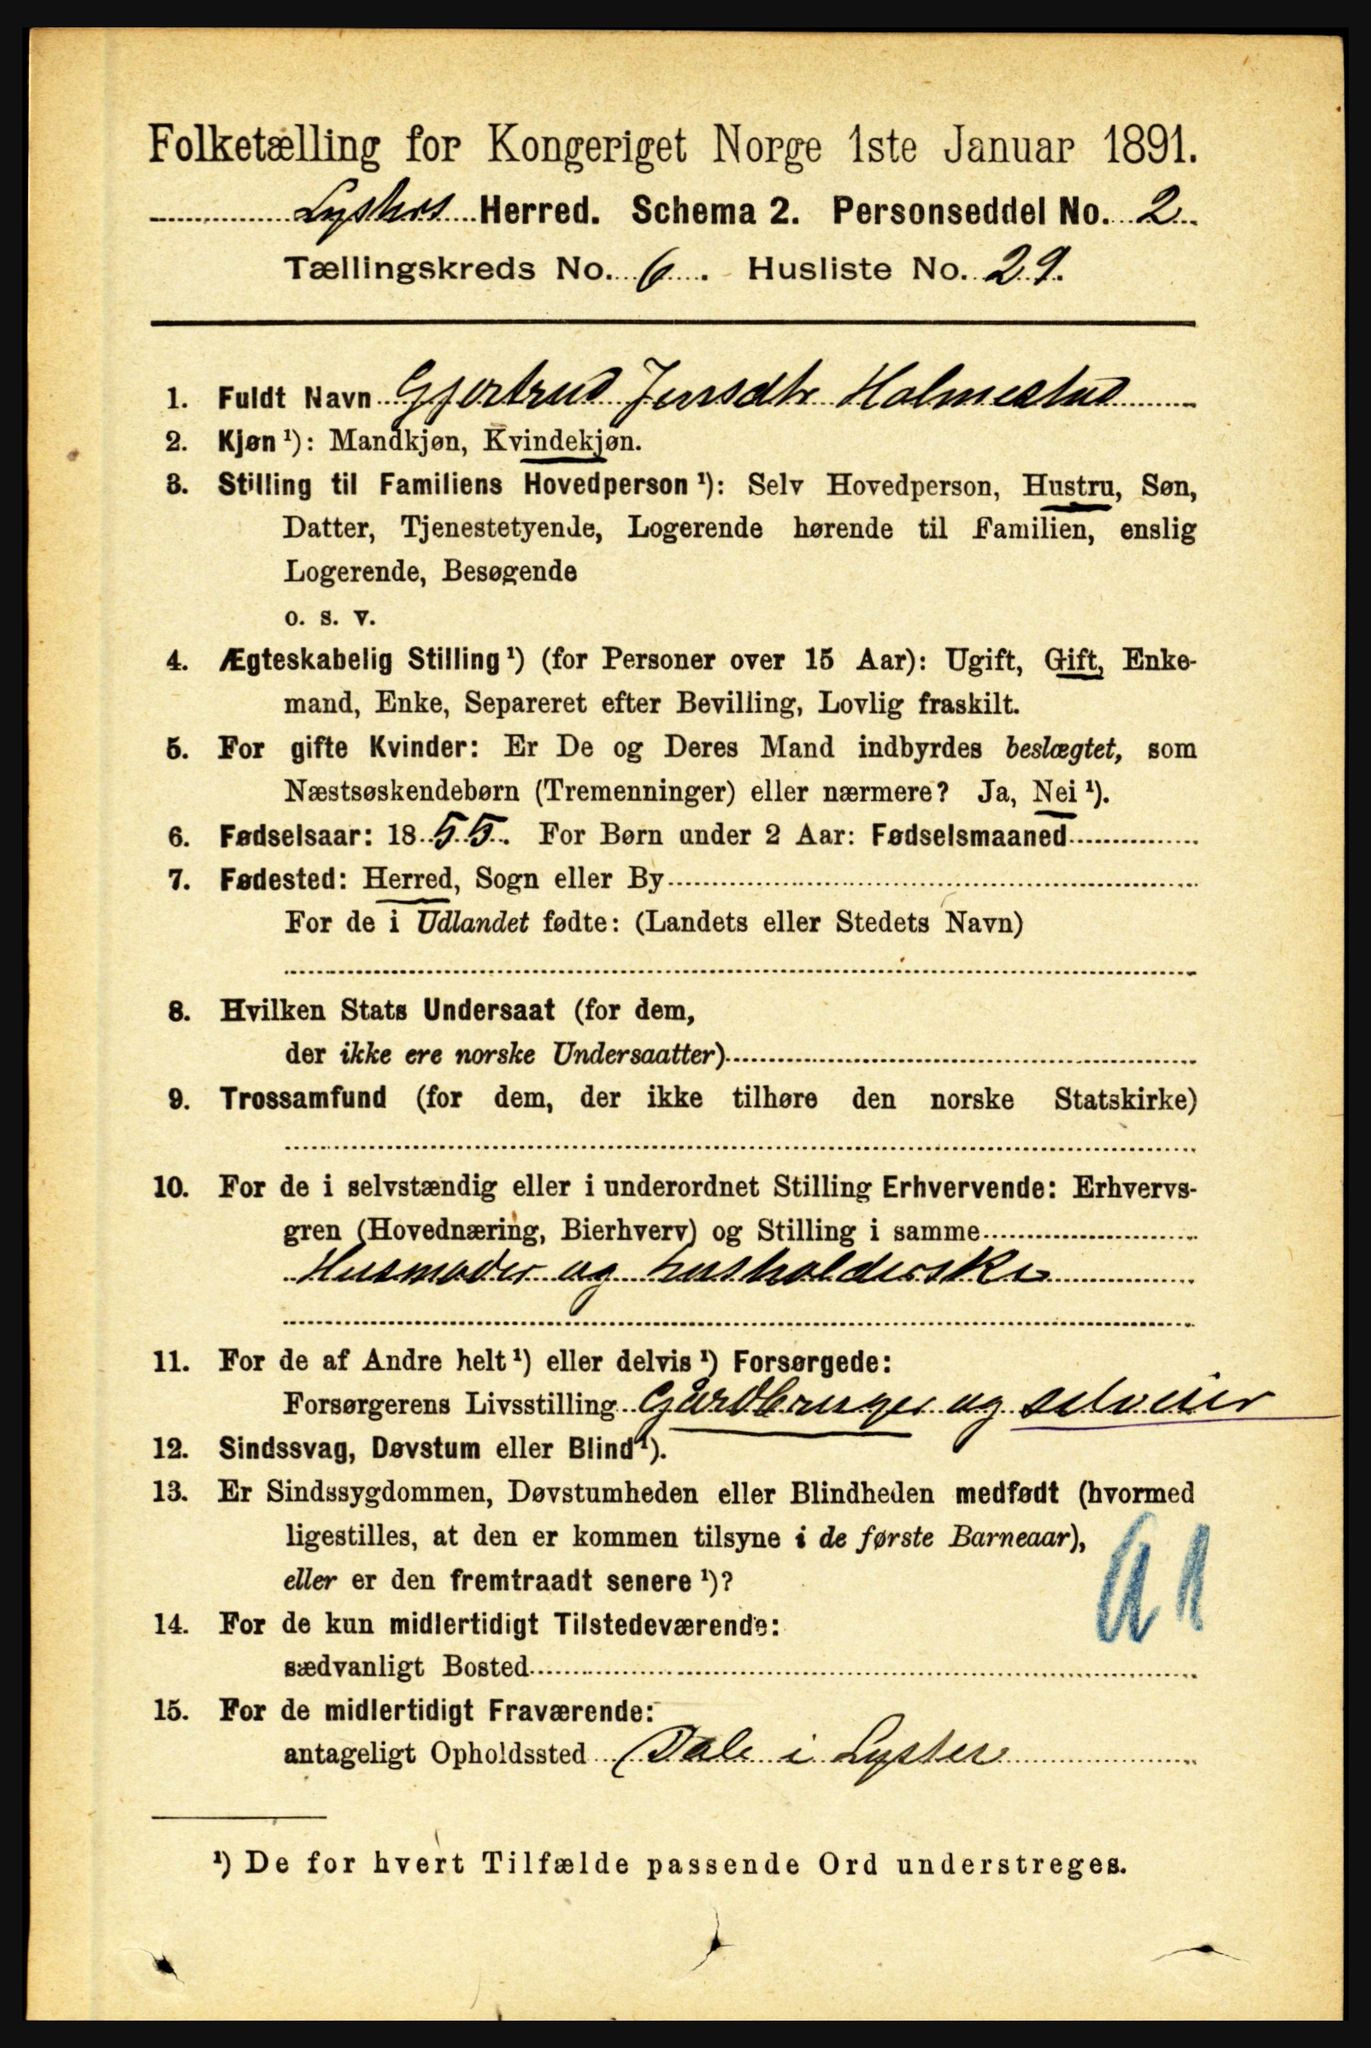 Folketælling for Kongeriget Norge 1ste Januar 1891.
Lysters Herred. Schema 2. Personseddel No. 2
Tællingskreds No. 6. Husliste No. 29.
1. Fuldt Navn Gjertrud Jensdtr Holmestad
2. Kjøn ¹): Mandkjøn, Kvindekjøn.
3. Stilling til Familiens Hovedperson ¹): Selv Hovedperson, Hustru, Søn,
Datter, Tjenestetyende, Logerende hørende til Familien, enslig
Logerende, Besøgende
o. s. v.
4. Ægteskabelig Stilling ¹) (for Personer over 15 Aar): Ugift, Gift, Enke-
mand, Enke, Separeret efter Bevilling, Lovlig fraskilt.
5. For gifte Kvinder: Er De og Deres Mand indbyrdes beslægtet, som
Næstsøskendebørn (Tremenninger) eller nærmere? Ja, Nei ¹).
6. Fødselsaar: 1855. For Børn under 2 Aar: Fødselsmaaned
7. Fødested: Herred, Sogn eller By
For de i Udlandet fødte: (Landets eller Stedets Navn)
8. Hvilken Stats Undersaat (for dem,
der ikke ere norske Undersaatter)
9. Trossamfund (for dem, der ikke tilhøre den norske Statskirke)
10. For de i selvstændig eller i underordnet Stilling Erhvervende: Erhvervs-
gren (Hovednæring, Bierhverv) og Stilling i samme
Husmoder og husholderske
11. For de af Andre helt ¹) eller delvis ¹) Forsørgede:
Forsørgerens Livsstilling Gårdbruger og selveier
12. Sindssvag, Døvstum eller Blind ¹).
13. Er Sindssygdommen, Døvstumheden eller Blindheden medfødt (hvormed
ligestilles, at den er kommen tilsyne i de første Barneaar),
eller er den fremtraadt senere ¹)?
a1
14. For de kun midlertidigt Tilstedeværende:
sædvanligt Bosted
15. For de midlertidigt Fraværende:
antageligt Opholdssted Dale i Lyster
¹) De for hvert Tilfælde passende Ord understreges.